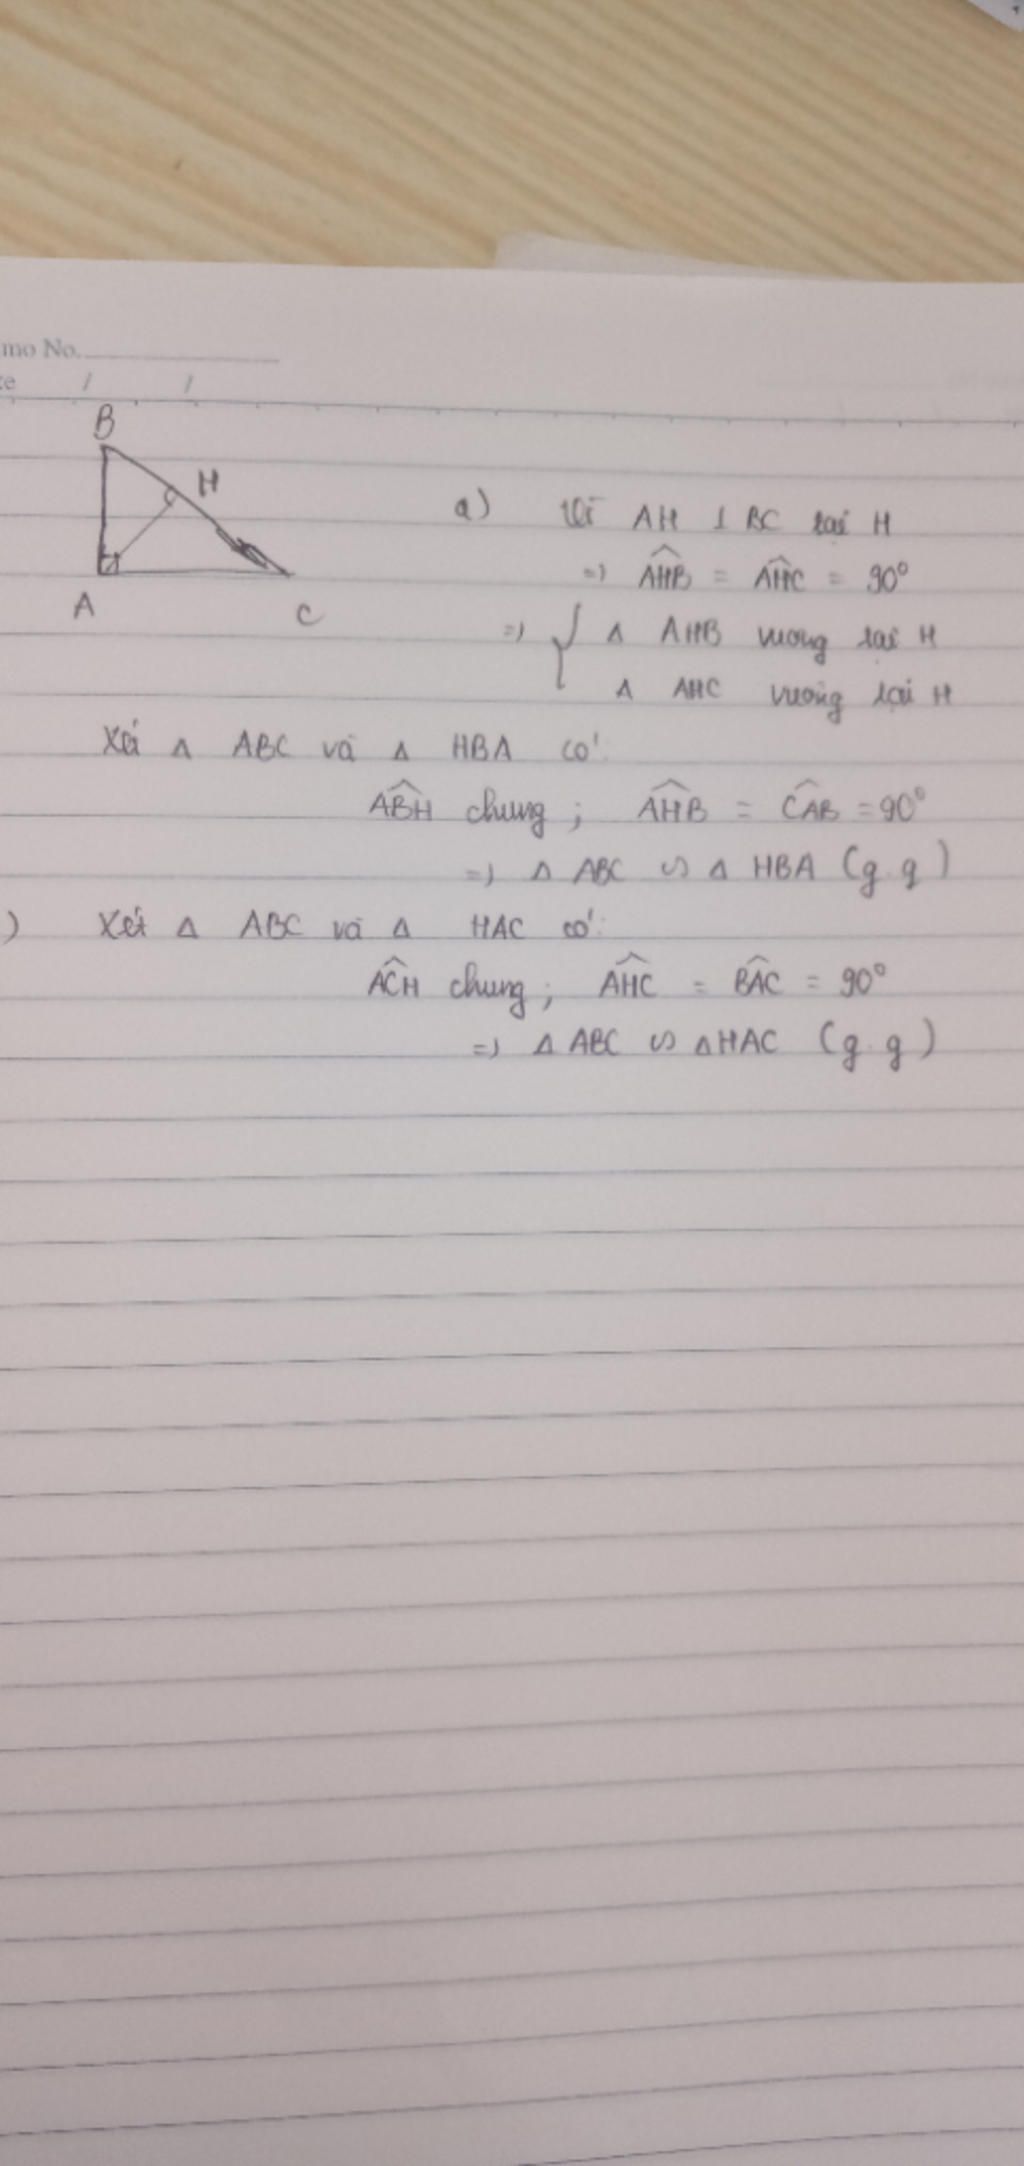 mo No.
te / /
B
H
A
C
a) Vì AH ⊥ BC tại H
=> \widehat{AHB} = \widehat{AHC} = 90°
=> { Δ AHB vuông tại H
Δ AHC vuông tại H
Xét Δ ABC và Δ HBA có:
\widehat{ABH} chung ; \widehat{AHB} = \widehat{CAB} = 90°
=> Δ ABC ∽ Δ HBA (g.g)
) Xét Δ ABC và Δ HAC có:
\widehat{ACH} chung ; \widehat{AHC} = \widehat{BAC} = 90°
=> Δ ABC ∽ Δ HAC (g.g)